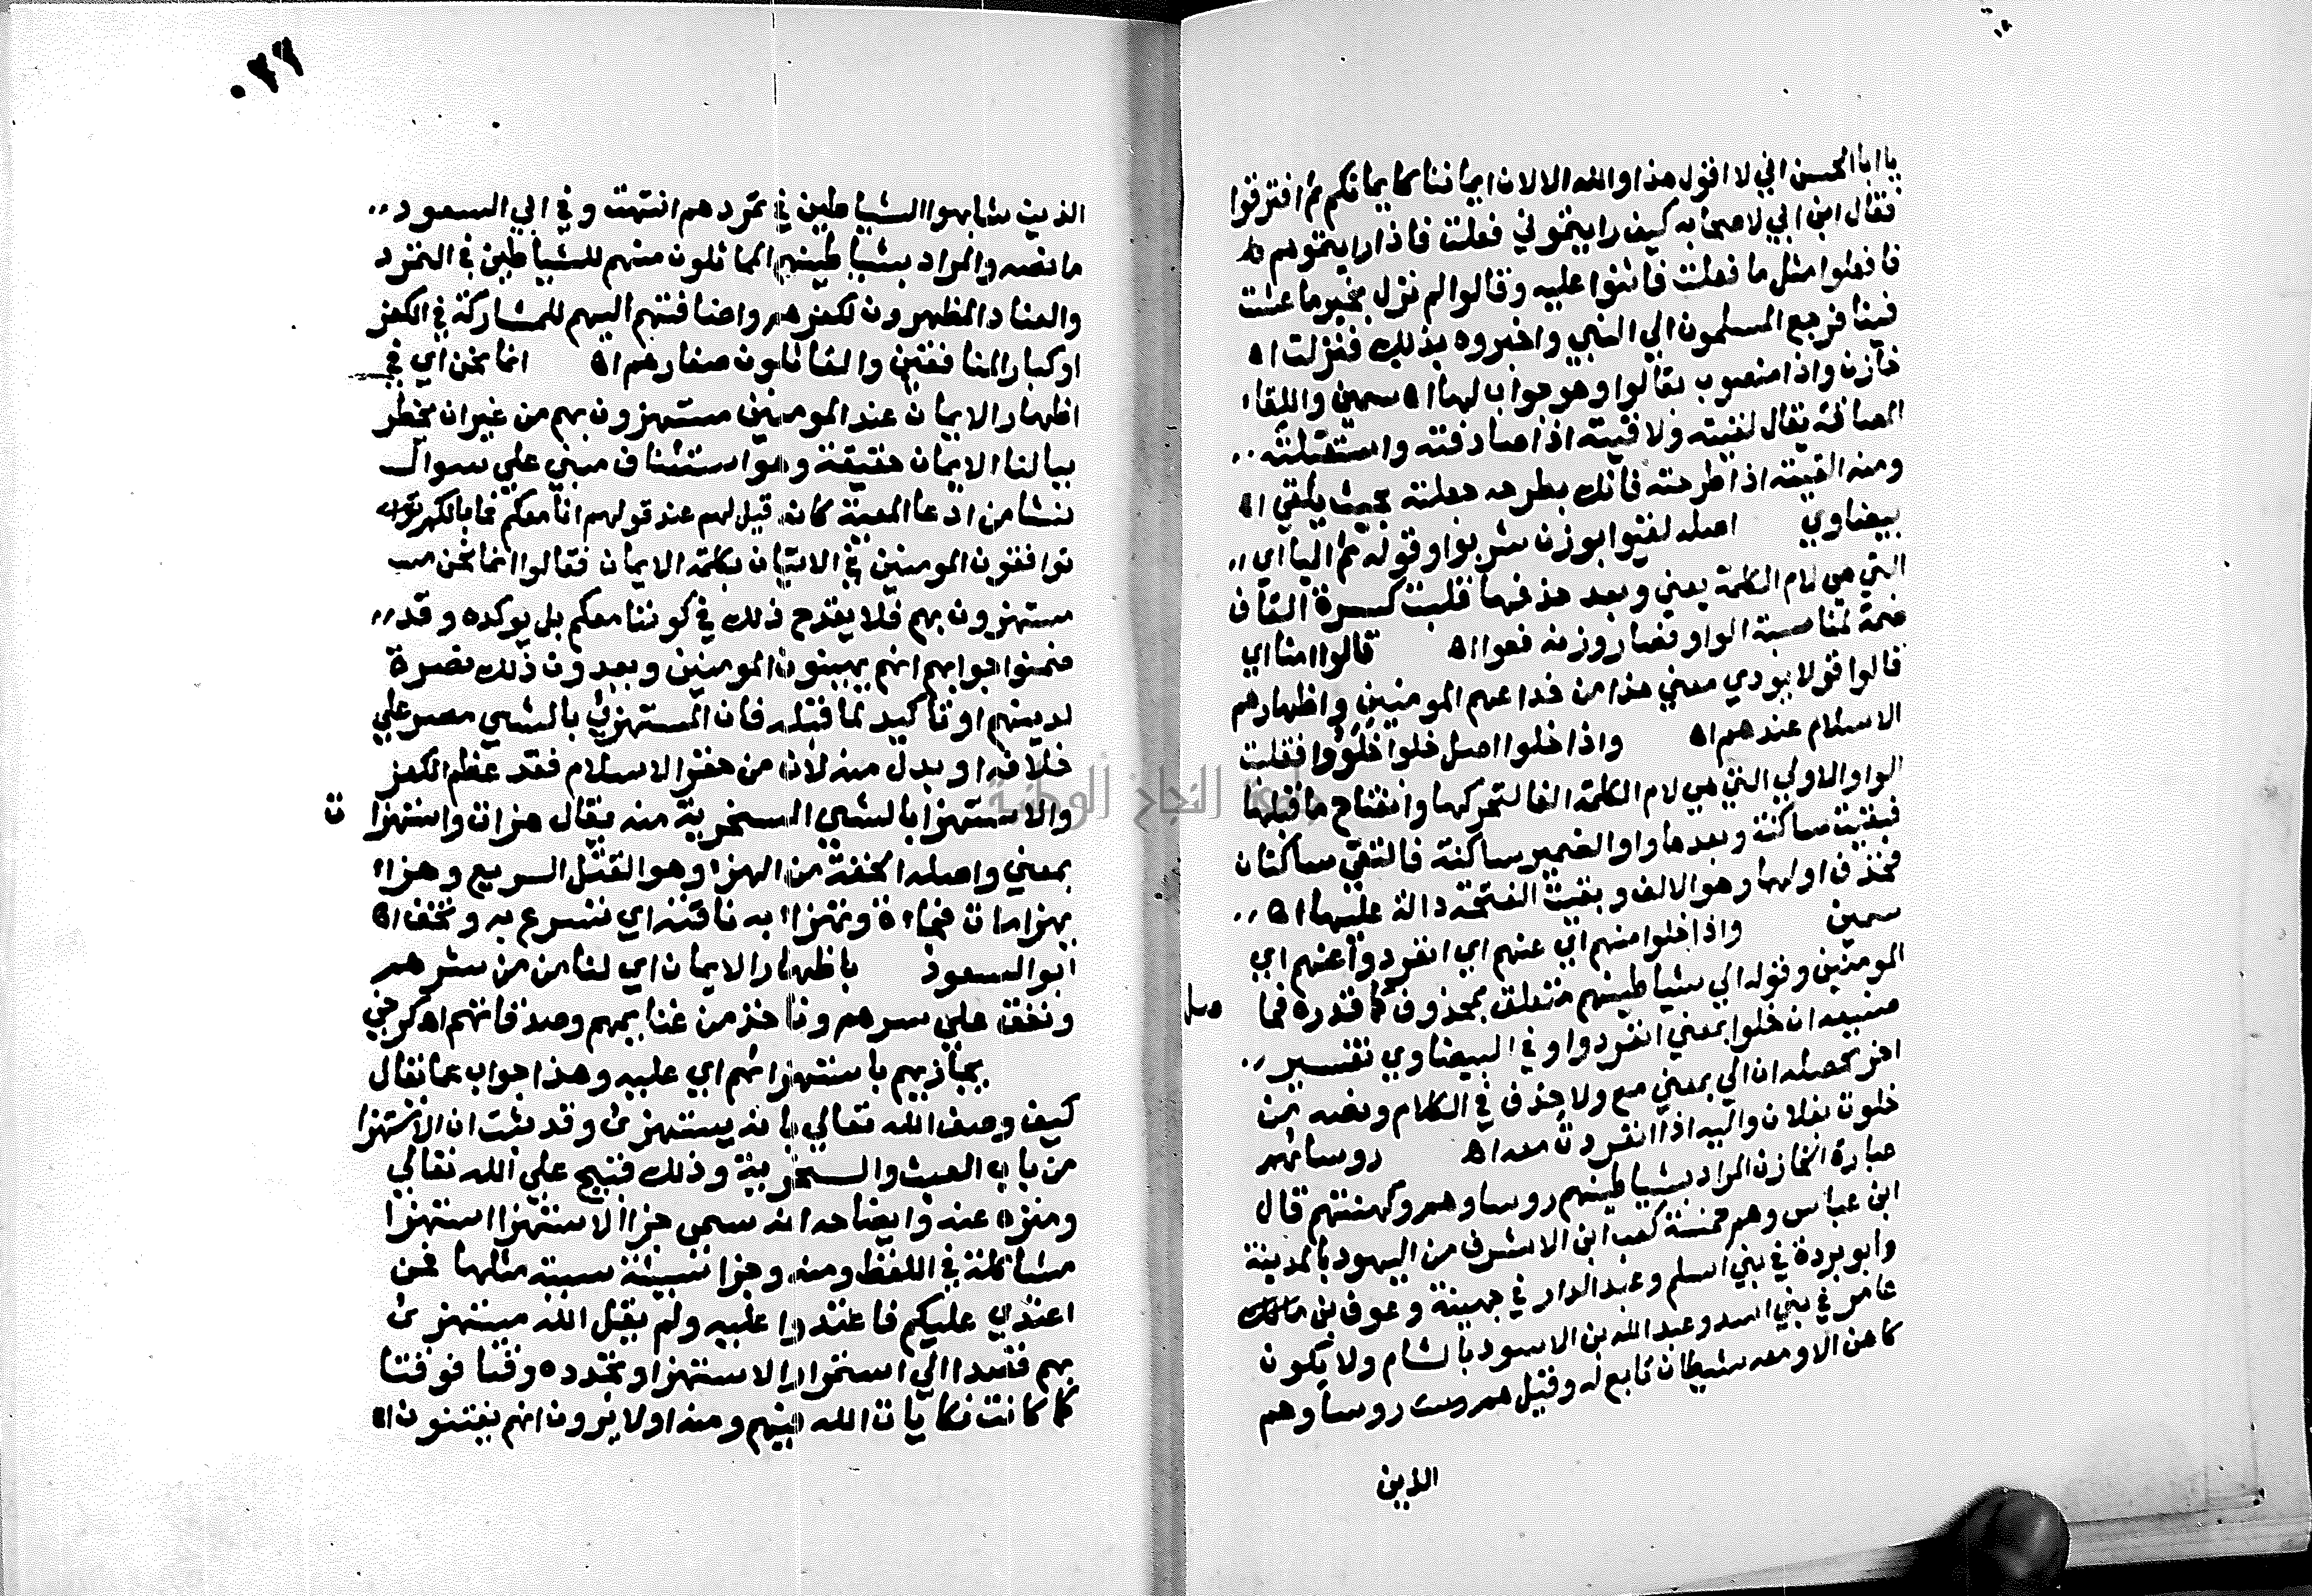 يا ابا الحسن اني لا اقول هذا والله الا لان ايماننا كايمانكم ثم افترقوا
فقال ابن ابي لاصحابه كيف رايتموني فعلت فاذا رايتموهم
فافعلوا مثل ما فعلت فاثنوا عليه وقالوا لم نزل بخير ما عشت
فينا فرجع المسلمون الي النبي واخبروه بذلك فنزلت اه
خازن واذا منصوب بقالوا وهو جواب لها اه سمين واللقاء
المصادفة يقال لقيته ولاقيته اذا صادفته واستقبلته
ومنه القيته اذا طرحته فانك بطرحه جعلته بحيث يلقي اه
بيضاوي اصله لقيوا بوزن شربوا وقوله ثم اليا اي
التي هي لام الكلمة يعني وبعد حذفها قلبت كسرة القاف
ضمة لمناسبة الواو فصار وزنه فعوا اه قالوا امنا اي
قالوا قولا يودي معني هذا من خداعهم المومنين واظهارهم
الاسلام عندهم اه واذا خلوا اصل خلوا خلووا فقلبت
الواو الاولي التي هي لام الكلمة الفا لتحركها وانفتاح ما قبلها
فبقيت ساكنة وبعدها واو الضمير ساكنة فالتقي ساكنان
فحذف اولهما وهو الالف وبقيت الفتحة دالة عليها اه
سمين واذا خلوا منهم اي عنهم اي انفردوا عنهم اي
المومنين وقوله الي شياطينهم متعلق بمحذوف كما قدره فما
صل
صنيعه ان خلوا بمعني انفردوا وفي البيضاوي تفسير
اخر محصله ان الي بمعني مع ولا حذف في الكلام ونصه من
خلوت بفلان واليه اذا انفردت معه اه روسائهم
عبارة الخازن المراد بشياطينهم روساوهم وكهنتهم قال
ابن عباس وهم خمسة كعب ابن الاشرف من اليهود بالمدينة
وابو بردة في بني اسلم وعبد الدار في جهينة وعوف بن مالك
عامر في بني اسد وعبد الله بن الاسود بالشام ولا يكون
كاهن الا ومعه شيطان تابع له وقيل هم روساوهم
الذين
٠٢٦
الذين شابهوا الشياطين في تمردهم انتهت وفي ابي السعود
ما نصه والمراد بشياطينهم المماثلون منهم للشياطين في التمرد
والعناد المظهرون لكفرهم واضافتهم اليهم للمشاركة في الكفر
او كبار المنافقين والقائلون صغارهم اه انما نحن اي في
اظهار الايمان عند المومنين مستهزون بهم من غير ان يخطر
ببالنا الايمان حقيقة وهو استئناف مبني علي سوال
نشا من ادعا المعية كانه قيل لهم عند قولهم انا معكم فما بالكم
توافقون المومنين في الاتيان بكلمة الايمان فقالوا انما نحن
مستهزون بهم فلا يقدح ذلك في كوننا معكم بل يوكده وقد
ضمنوا جوابهم انهم يهينون المومنين ويعدون ذلك نصرة
لدينهم او تاكيد لما قبله فان المستهزئ بالشي مصر علي
خلافه او بدل منه لان من حقر الاسلام فقد عظم الكفر
والاستهزا بالشي السخرية منه يقال هزات واستهزات
بمعني واصله الخفة من الهزا وهو القتل السريع وهزا
يهزا مات فجاءة وتهزا به ناقته اي تسرع به وتخف اه
ابو السعود باظهار الايمان اي لنامن من شرهم
ونقف علي سرهم وناخذ من غنايمهم وصدقاتهم اه كرخي
يجازيهم باستهزائهم اي عليه وهذا جواب عما نقال
كيف وصف الله تعالي بانه يستهزئ وقد ثبت ان الاستهزا
من باب العبث والسخرية وذلك قبيح علي الله تعالي
ومنزه عنه وايضاحه انه سمي جزا الاستهزا استهزا
مشاكلة في اللفظ ومنه وجزا سيئة سيئة مثلها فمن
اعتدي عليكم فاعتدوا عليه ولم يقل الله مستهزئ
بهم قصدا الي استمرار الاستهزا وتجدده وقتا فوقتا
كما كانت نكايات الله فيهم ومنه اولا يرون انهم يفتنون اه
جامعة النجاح الوطنية